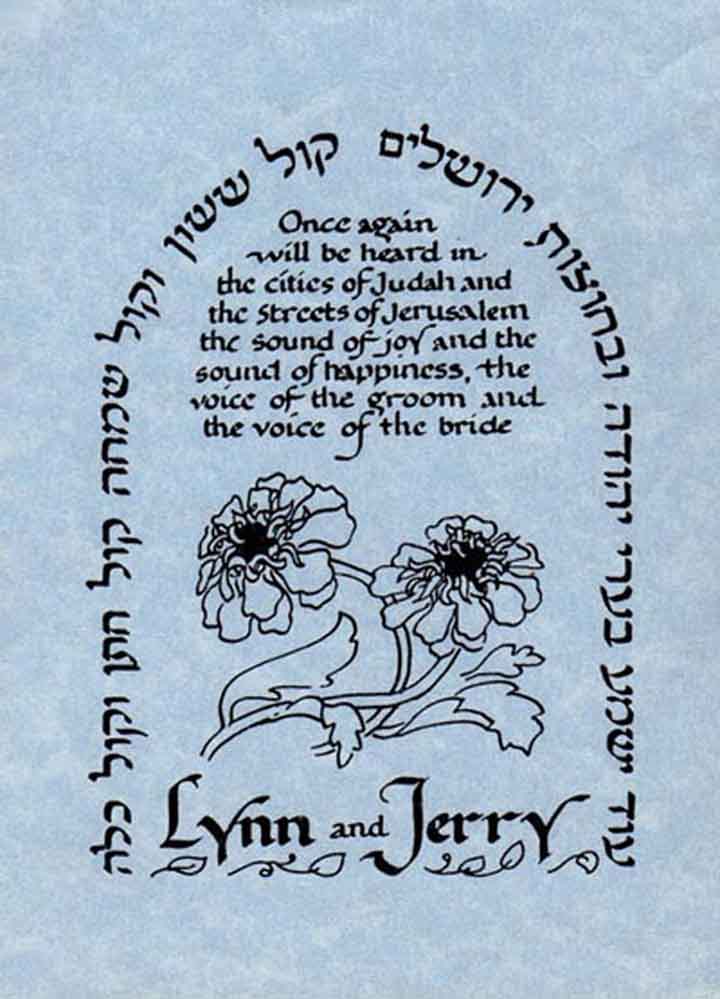 עוד ישמע בערי יהודה ובחוצות ירושלים קול ששון וקול שמחה קול חתן וקול כלה
Once again
will be heard in
the cities of Judah and
the streets of Jerusalem
the sound of joy and the
sound of happiness, the
voice of the groom and
the voice of the bride
Lynn and Jerry